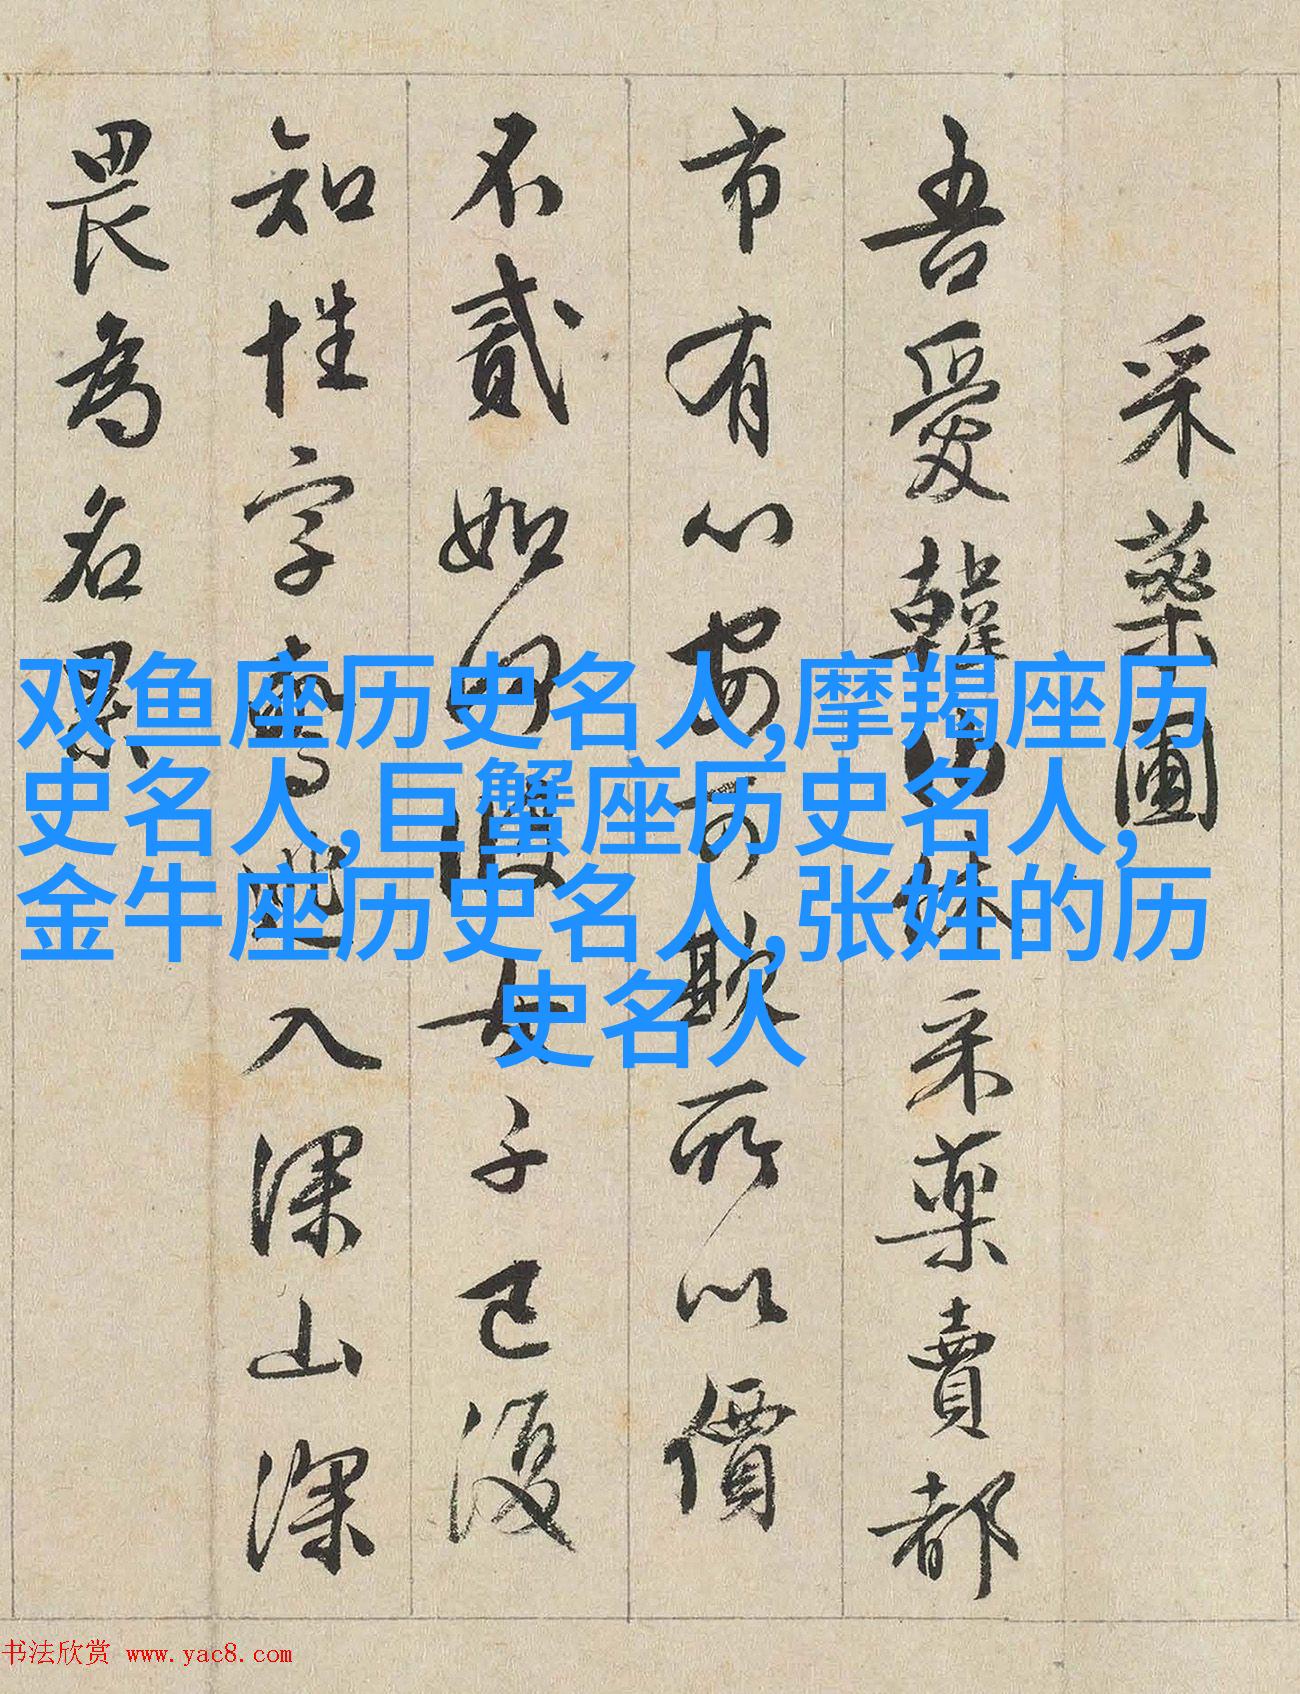 采藥圃
吾愛韓伯休采藥賣都
市有心安可欺所以價
不貳如何彼女子已復
知姓字驚逃入深山深
畏為名累
双鱼座历史名人,摩羯座历
史名人,巨蟹座历史名人,
金牛座历史名人,张姓的历
史名人
书法欣赏 www.yac8.com